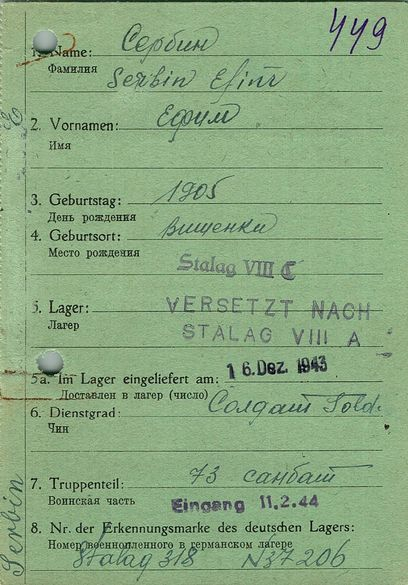 449
1. Name: Сербин
Фамилия
Serbin Efim
2. Vornamen: Ефим
Имя
3. Geburtstag: 1905
День рождения
4. Geburtsort: Вищенки
Место рождения
Stalag VIII C
5. Lager: VERSETZT NACH
Лагерь
STALAG VIII A
16. Dez. 1943
5a. Im Lager eingeliefert am:
Доставлен в лагерь (число)
6. Dienstgrad: Солдат Sold.
Чин
7. Truppenteil: 73 санбат
Воинская часть
Eingang 11.2.44
8. Nr. der Erkennungsmarke des deutschen Lagers:
Номер военнопленного в германском лагере
Stalag 318 N 37206
Serbin
E